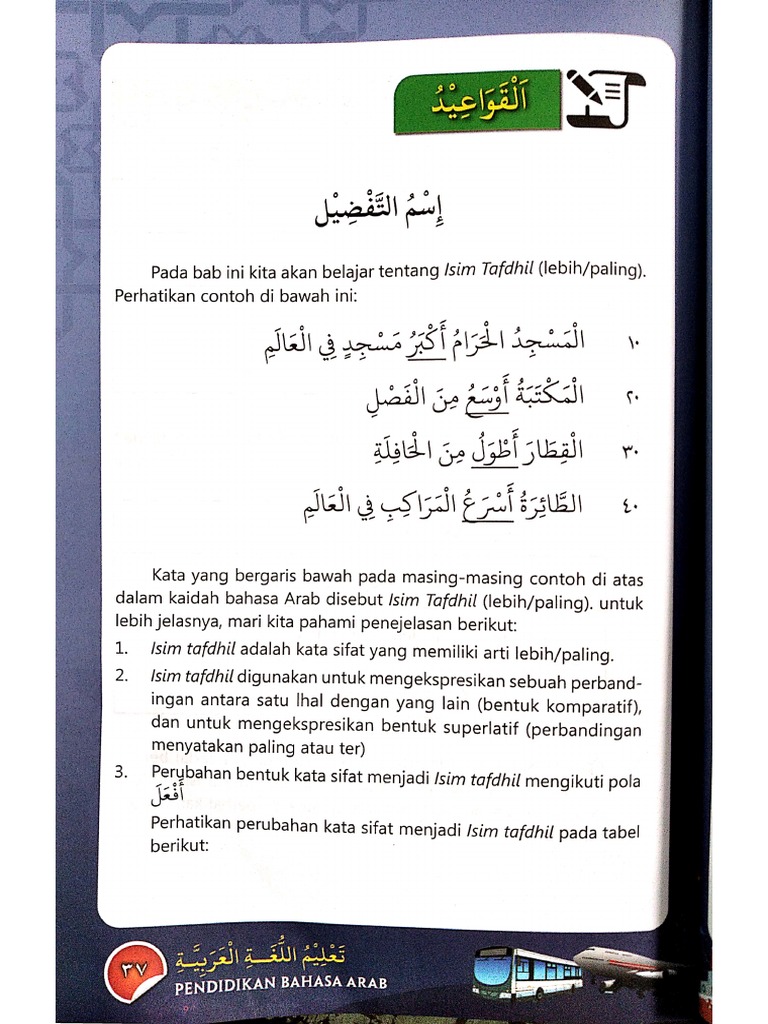 اَلْقَوَاعِيْدُ
إِسْمُ التَّفْضِيْل
Pada bab ini kita akan belajar tentang Isim Tafdhil (lebih/paling).
Perhatikan contoh di bawah ini:
١٠ الْمَسْجِدُ الْحَرَامُ أَكْبَرُ مَسْجِدٍ فِي الْعَالَمِ
٢٠ الْمَكْتَبَةُ أَوْسَعُ مِنَ الْفَصْلِ
٣٠ الْقِطَارَ أَطْوَلُ مِنَ الْحَافِلَةِ
٤٠ الطَّائِرَةُ أَسْرَعُ الْمَرَاكِبِ فِي الْعَالَمِ
Kata yang bergaris bawah pada masing-masing contoh di atas
dalam kaidah bahasa Arab disebut Isim Tafdhil (lebih/paling). untuk
lebih jelasnya, mari kita pahami penejelasan berikut:
1. Isim tafdhil adalah kata sifat yang memiliki arti lebih/paling.
2. Isim tafdhil digunakan untuk mengekspresikan sebuah perband-
ingan antara satu lhal dengan yang lain (bentuk komparatif),
dan untuk mengekspresikan bentuk superlatif (perbandingan
menyatakan paling atau ter)
3. Perubahan bentuk kata sifat menjadi Isim tafdhil mengikuti pola
أَفْعَلَ
Perhatikan perubahan kata sifat menjadi Isim tafdhil pada tabel
berikut:
٣٧
تَعْلِيْمُ اللُّغَـةِ الْعَرَبِيَّـةِ
PENDIDIKAN BAHASA ARAB